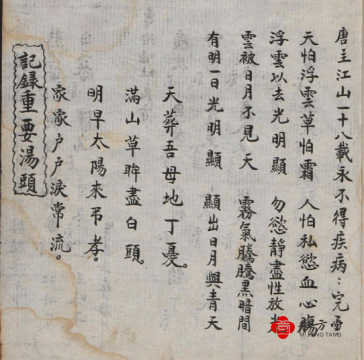 唐主江山一十八載永不得疾病：完
天怕浮雲草怕霜　人怕私慾血心
浮雲以去光明顯　勿慾靜盡性放
雲被日月不見天　霧氣騰騰黑暗間
有明一日光明顯　顯出日月與青天
天葬吾母地丁憂。
滿山草眸盡白頭。
明早太陽來弔孝。
家家户户淚常流。
記録重要湯頭
方
MI FANG TANG